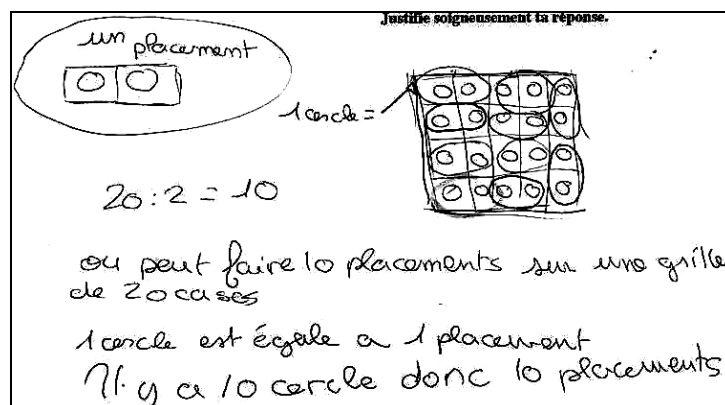 Justifie soigneusement ta réponse.
un placement
1 cercle =
20 : 2 = 10
ou peut faire 10 placements sur une grille
de 20 cases
1 cercle est égale a 1 placement
Il y a 10 cercle donc 10 placements